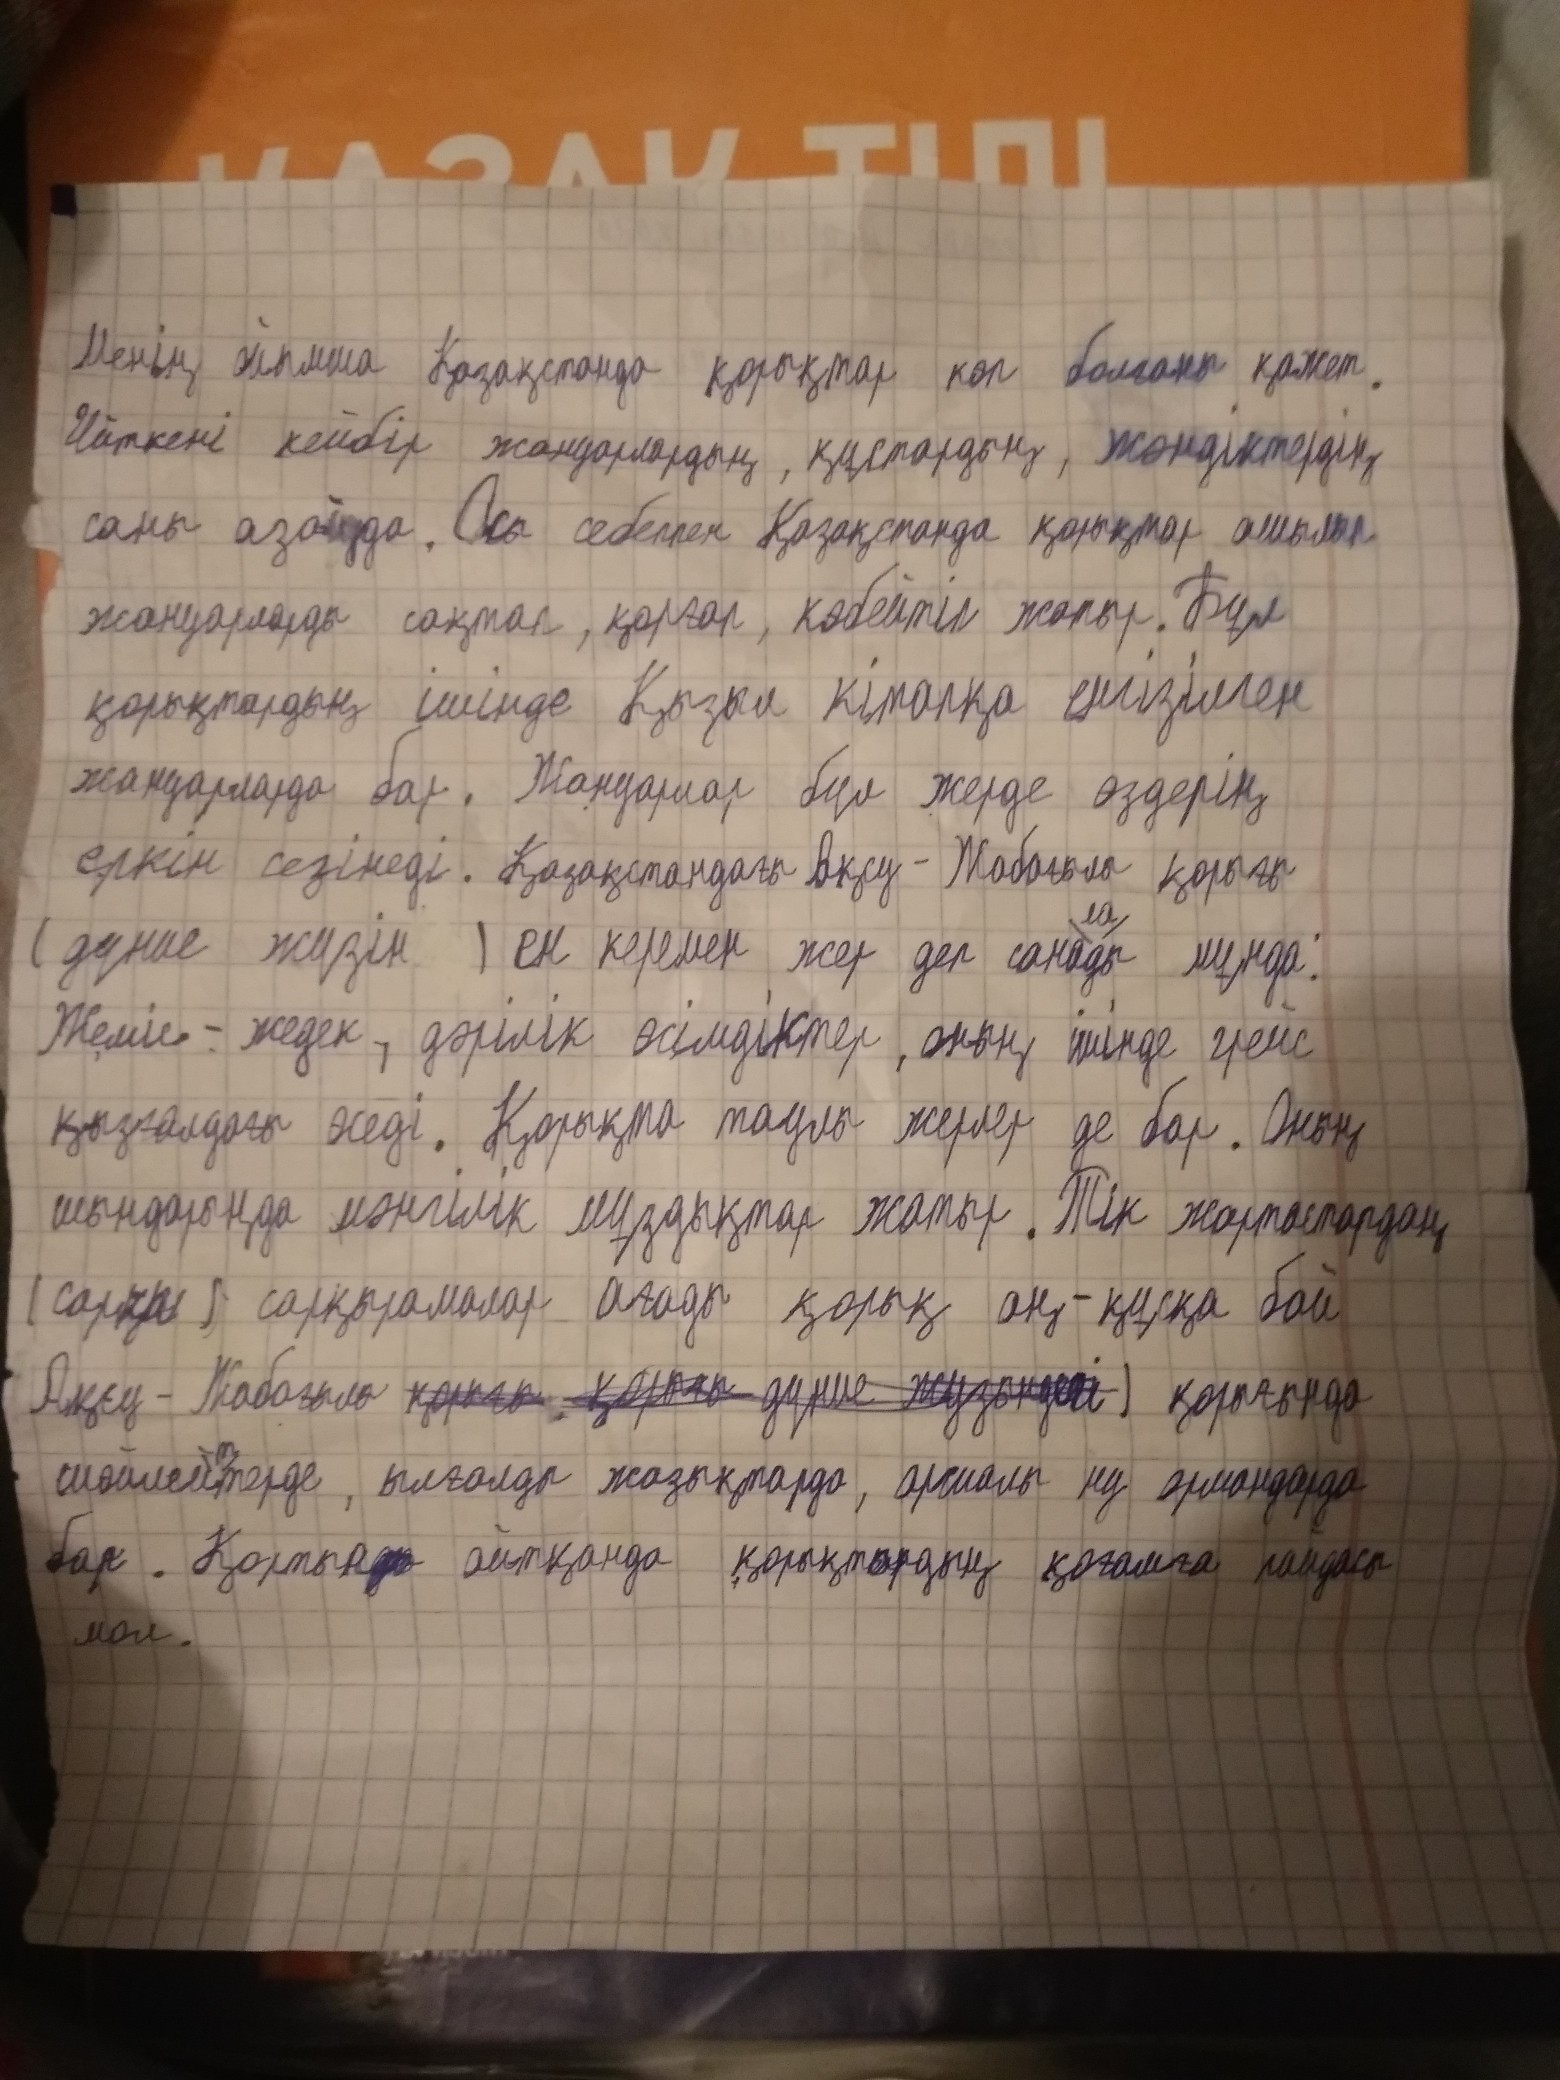 ҚАЗАҚ ТІЛІ
Менің ойымша Қазақстанда қорықтар көп болғаны қажет.
Үйткені кейбір жануарлардың, құстардың, жәндіктердің
саны азаюда. Осы себеппен Қазақстанда қорықтар ашылып
жануарларды сақтап, қорғап, көбейтіп жатыр. Бұл
қорықтардың ішінде Қызыл кітапқа енгізілген
жануарларда бар. Жануарлар бұл жерде өздерің
еркін сезінеді. Қазақстандағы Ақсу - Жабағылы қорығы
(дүние жүзін ) ен керемен жер деп саналады мұнда:
Жеміс - жедек, дәрілік өсімдіктер, оның ішінде грейс
қызғалдағы өседі. Қорықта таулы жерлер де бар. Оның
шындарыңда мәнгілік мұздықтар жатыр. Тік жартастардаң
( ) сарқырамалар ағады қорық аң-құсқа бай
Ақсу - Жабағылы қорығы қорығы дүние жүзіндегі) қорығында
шөлейттерде, ылғалды жазықтарда, аршалы ну ормандарда
бар. Қортынды айтқанда қорықтардың қоғамға пайдасы
мол.